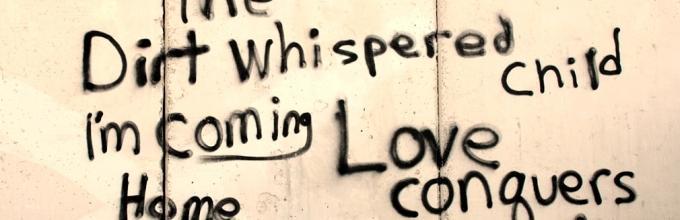 The
Dirt whispered
Child
I'm coming
Home
Love
conquers